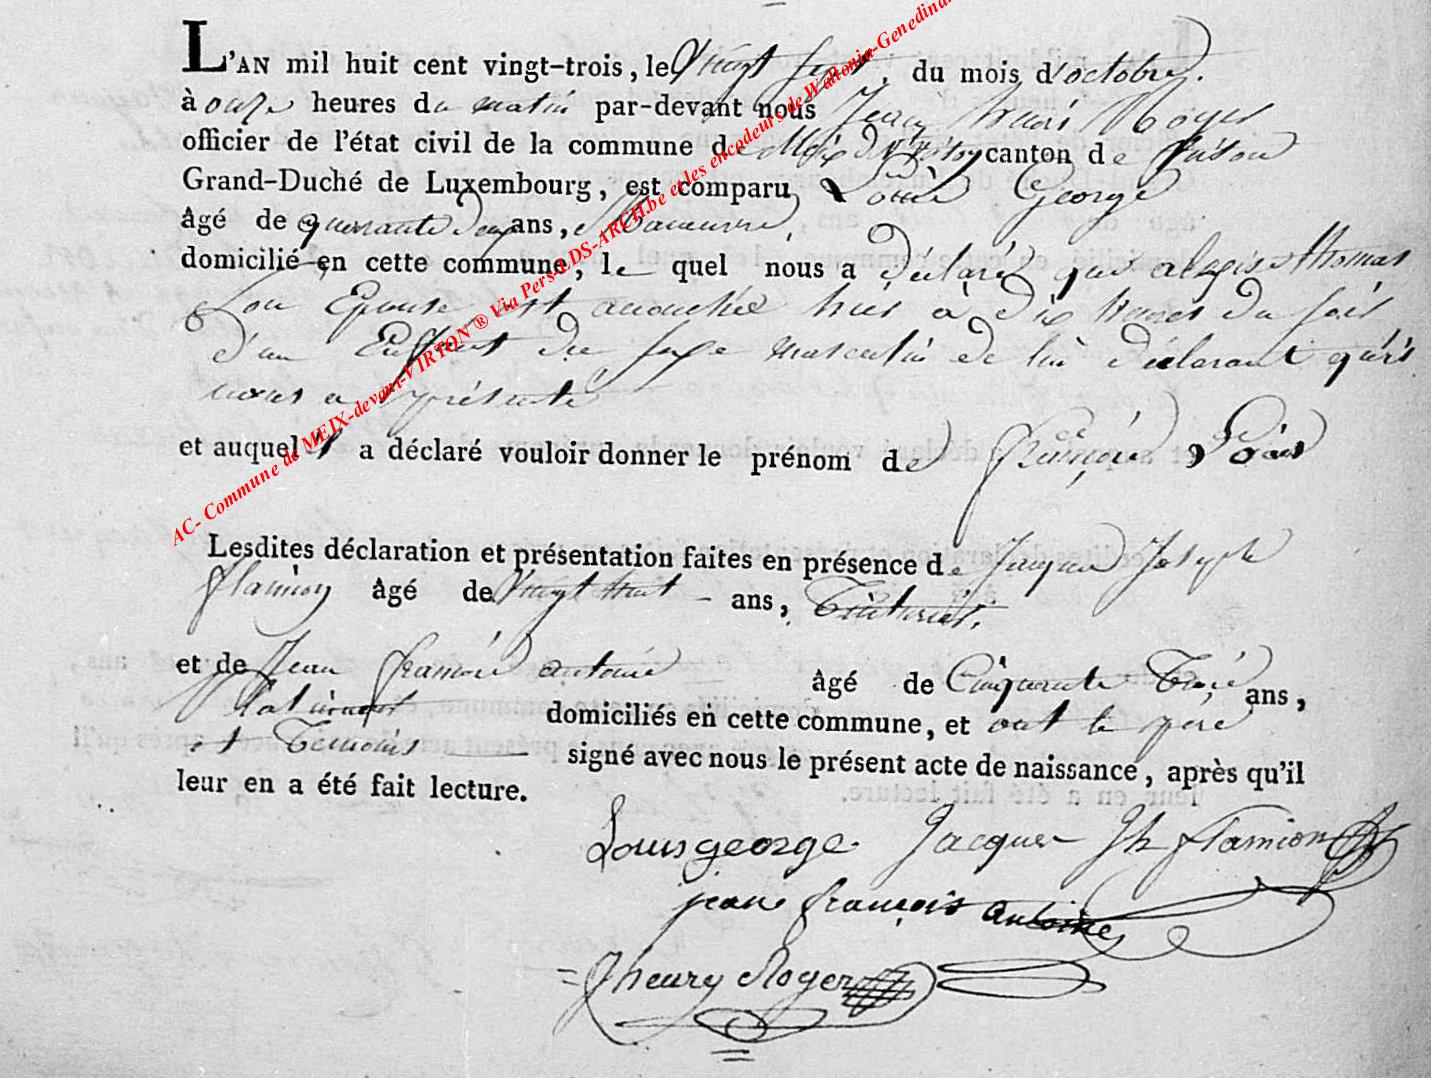 L'AN mil huit cent vingt-trois, le vingt sept, du mois d'octobre,
à onze heures du matin par-devant nous Jean henri Roger
officier de l'état civil de la commune de Meix dt Virton canton de Virton
Grand-Duché de Luxembourg, est comparu Louis George
âgé de quarante deux ans, Manœuvre,
domicilié en cette commune, le quel nous a déclaré que thomas
son Epouse est accouchée hier à dix heures du soir
d'un Enfant du sexe masculin de lui déclarant qu'il
nous a présenté
et auquel il a déclaré vouloir donner le prénom de
Lesdites déclaration et présentation faites en présence de Jacque Joseph
flamion âgé de vingt huit ans,
et de Jean françois antoine âgé de Cinquante Trois ans,
domiciliés en cette commune, et ont le père
et Temoins signé avec nous le présent acte de naissance, après qu'il
leur en a été fait lecture.
Louis george Jacques Jh flamion
jean françois antoine
Jhenry Roger
AC- Commune de MEIX-devant-VIRTON ® Via Pers-LDS-ARCH.be et les encodeurs de Wallonia-Genedinan